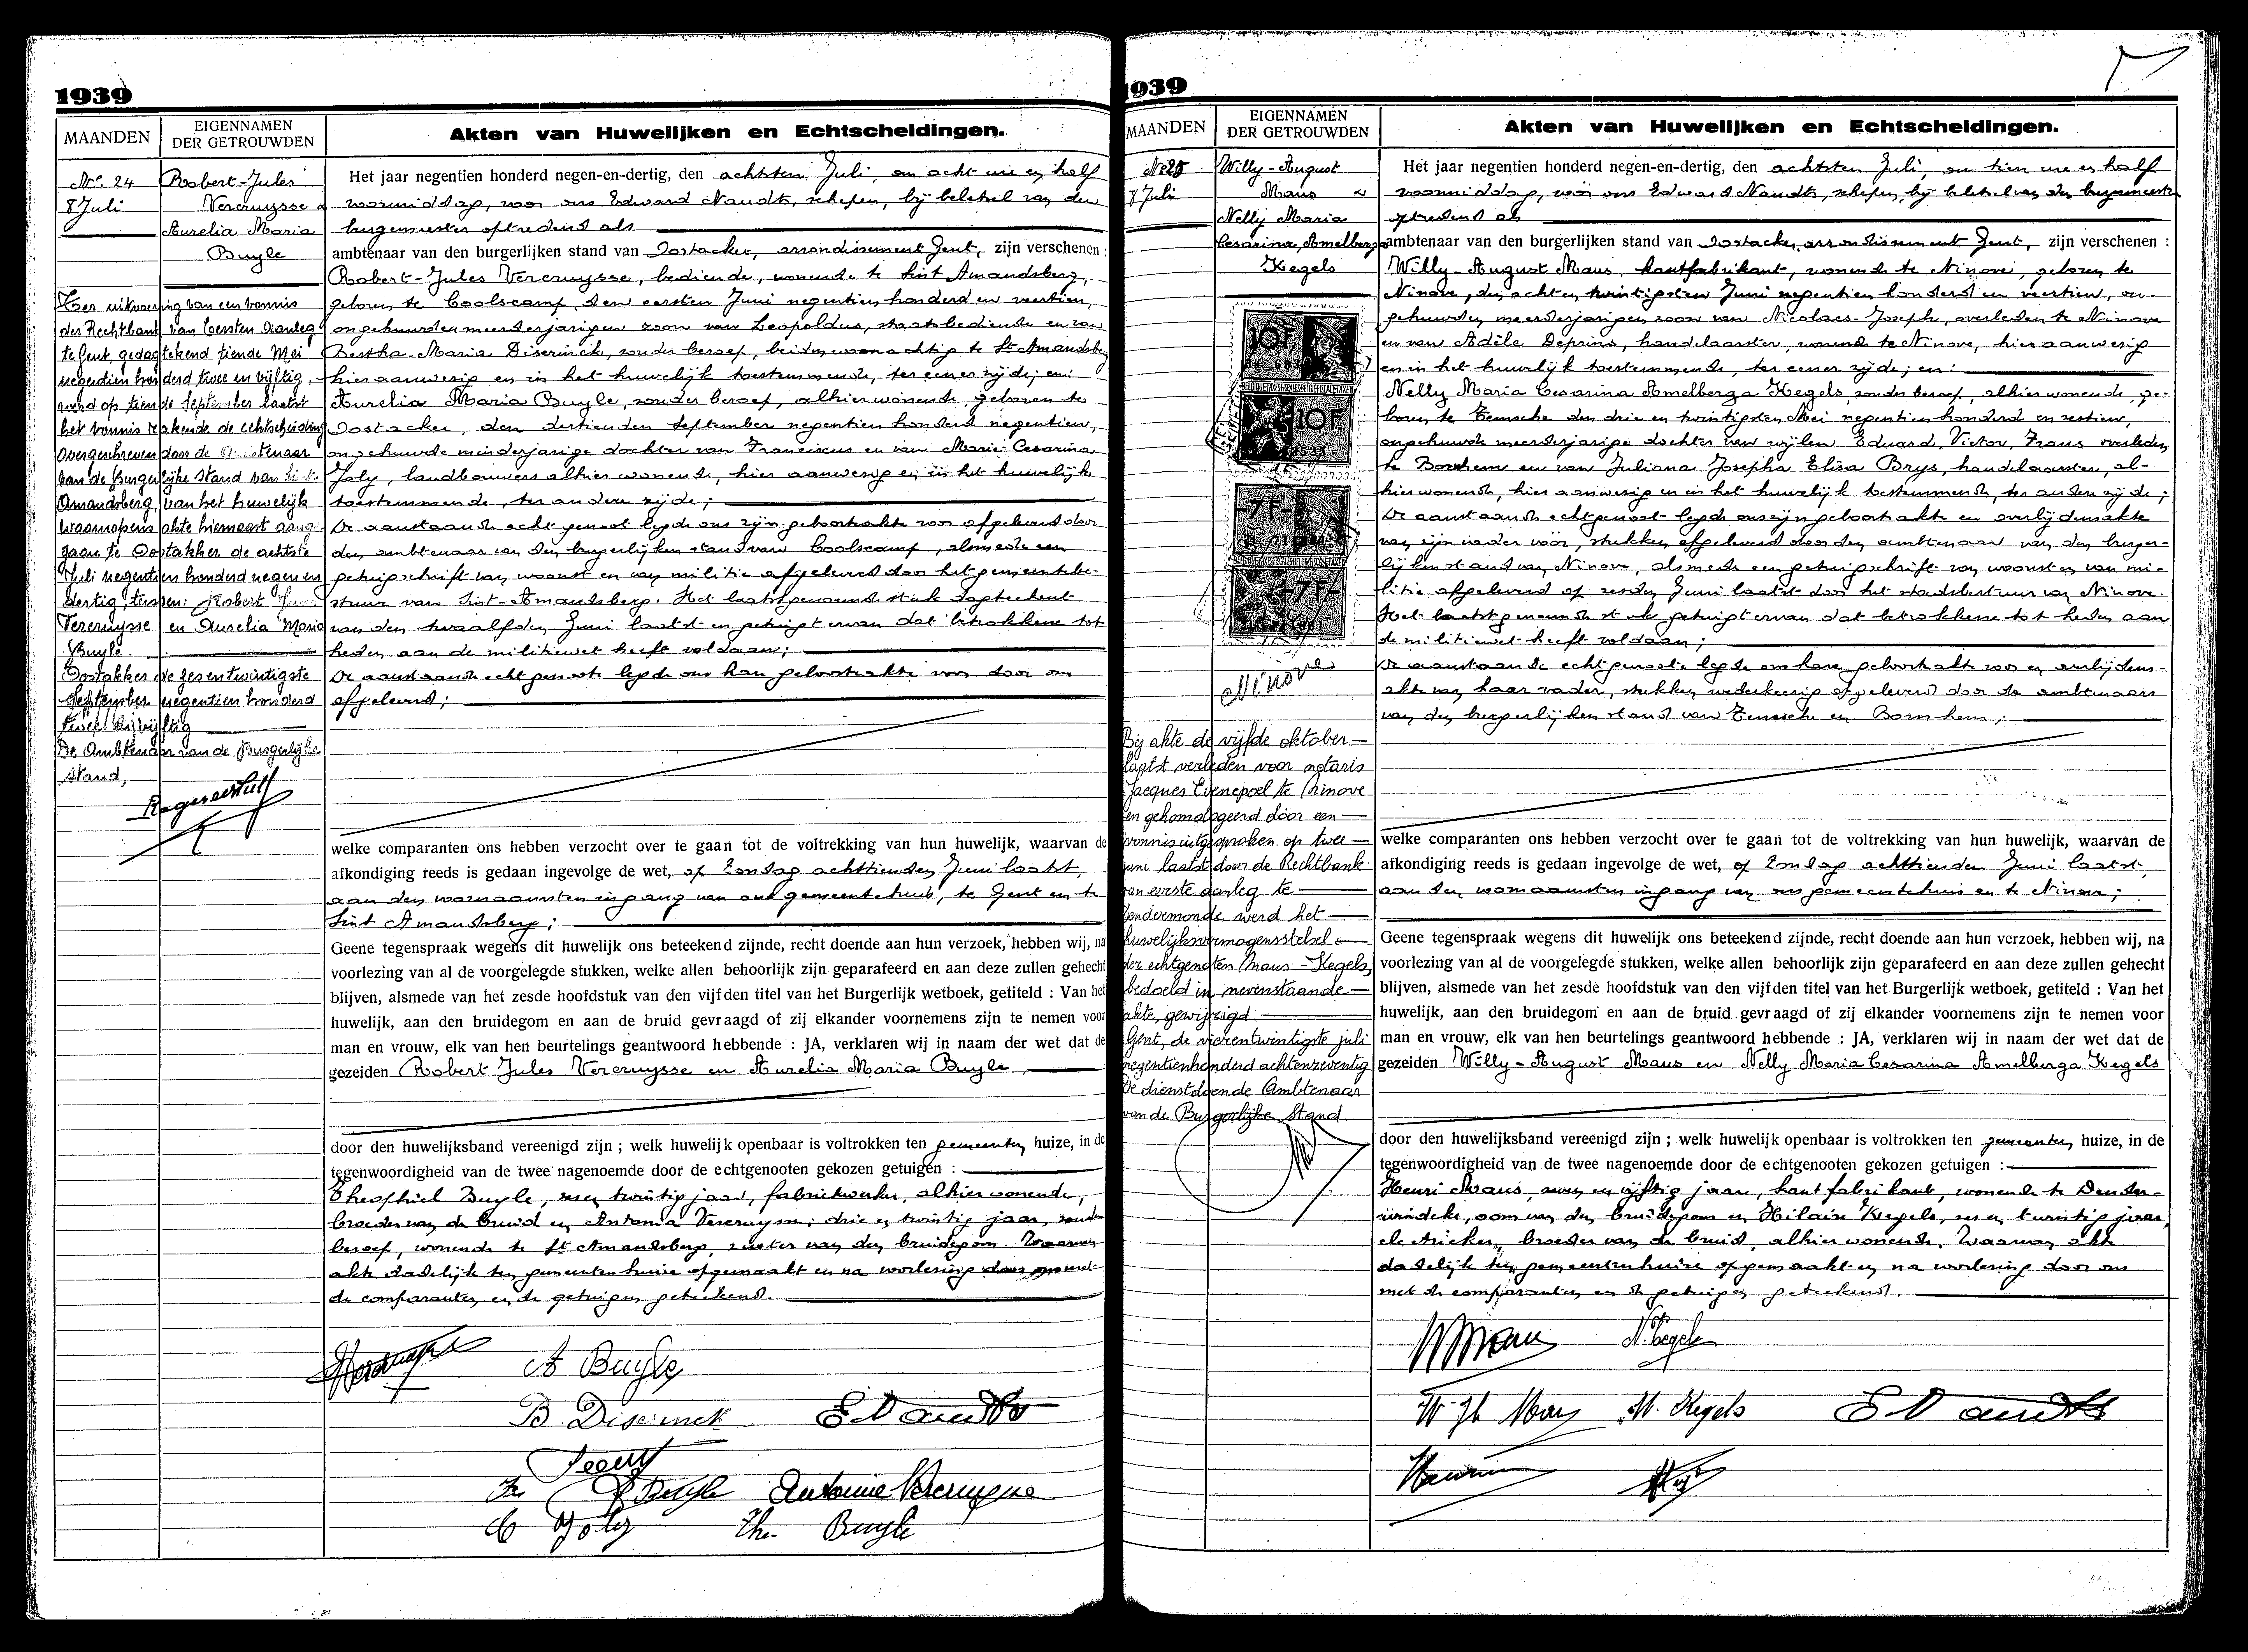 1939
MAANDEN
EIGENNAMEN
DER GETROUWDEN
Akten van Huwelijken en Echtscheidingen.
No. 24
8 Juli
Robert-Jules
Vercruysse &
Aurelia Maria
Buyle
Door uitvoering van een vonnis
der Rechtbank van Eersten Aanleg
te Gent, gedagtekend tiende Mei
negentien honderd twee en vijftig,
werd op tiende September laatst
het vonnis rakende de echtscheiding
overgeschreven door de Ambtenaar
van de Burgerlijke Stand van Sint-
Amandsberg, van het huwelijk
waarnopens akte hiernaast aange-
gaan te Oostakker de achtste
Juli negentien honderd negen en
dertig, tussen: Robert Jules
Vercruysse en Aurelia Maria
Buyle.
Oostakker de zesentwintigste
September negentien honderd
twee en vijftig
De Ambtenaar van de Burgerlijke
Stand,
Het jaar negentien honderd negen-en-dertig, den achtsten Juli, om acht ure en half
voormiddag, voor ons Edward Naudts, schepen, bij belet van den
burgemeester optredend als
ambtenaar van den burgerlijken stand van Oostacker, arrondissement Gent, zijn verschenen :
Robert-Jules Vercruysse, bediende, wonende te Sint Amandsberg,
geboren te Coolscamp, den eersten Juni negentien honderd en veertien,
ongehuwden meerderjarigen zoon van Leopoldus, staatsbediende en van
Bertha Maria Diserinck, zonder beroep, beiden woonachtig te St Amandsberg
hier aanwezig en in het huwelijk toestemmende, ter eener zijde; en:
Aurelia Maria Buyle, zonder beroep, alhier wonende, geboren te
Oostacker, den dertienden September negentien honderd negentien,
ongehuwde minderjarige dochter van Franciscus en van Marie Cesarina
Joly, landbouwers alhier wonende, hier aanwezig en in het huwelijk
toestemmende, ter andere zijde;
De aanstaande echtgenoot legde ons zijn geboorteakte voor afgeleverd door
den ambtenaar van den burgerlijken stand van Coolscamp, alsmede een
getuigschrift van woonst en van militie afgeleverd door het gemeentebe-
stuur van Sint-Amandsberg. Het laatstgenoemde stuk dagteekent
van den twaalfden Juni laatst en getuigt ervan dat betrokkene tot
heden aan de militiewet heeft voldaan;
De aanstaande echtgenoote legde ons haar geboorteakte voor door ons
afgeleverd;
welke comparanten ons hebben verzocht over te gaan tot de voltrekking van hun huwelijk, waarvan de
afkondiging reeds is gedaan ingevolge de wet, op Zondag achttienden Juni laatst,
aan den voornaamsten ingang van ons gemeentehuis, te Gent en te
Sint Amandsberg;
Geene tegenspraak wegens dit huwelijk ons beteekend zijnde, recht doende aan hun verzoek, hebben wij, na
voorlezing van al de voorgelegde stukken, welke allen behoorlijk zijn geparafeerd en aan deze zullen gehecht
blijven, alsmede van het zesde hoofdstuk van den vijfden titel van het Burgerlijk wetboek, getiteld : Van het
huwelijk, aan den bruidegom en aan de bruid gevraagd of zij elkander voornemens zijn te nemen voor
man en vrouw, elk van hen beurtelings geantwoord hebbende : JA, verklaren wij in naam der wet dat de
gezeiden Robert Jules Vercruysse en Aurelia Maria Buyle
door den huwelijksband vereenigd zijn ; welk huwelijk openbaar is voltrokken ten gemeenten huize, in de
tegenwoordigheid van de twee nagenoemde door de echtgenooten gekozen getuigen :
Theophiel Buyle, zes en twintig jaar, fabriekwerker, alhier wonende,
broeder van de bruid en Antonia Vercruysse, drie en twintig jaar, zonder
beroep, wonende te St Amandsberg, zuster van den bruidegom. Waarvan
akte dadelijk ten gemeentenhuize opgemaakt en na voorlezing door ons met
de comparanten en de getuigen geteekend.
A Buyle
B Diserinck
E Naudts
Fr Buyle
Antonie Vercruysse
C Joly
The. Buyle
1939
MAANDEN
EIGENNAMEN
DER GETROUWDEN
Akten van Huwelijken en Echtscheidingen.
No 25
8 Juli
Willy-August
Maus &
Nelly Maria
Cesarina, Amelberga
Kegels
10F
10F
7F
7F
Ninove
Bij akte de vijfde oktober
laatst verleden voor notaris
Jacques Evenepoel te Ninove
en gehomologeerd door een
vonnis uitgesproken op twee
juni laatst door de Rechtbank
van eerste aanleg te
Dendermonde werd het
huwelijksvermogensstelsel
der echtgenoten Maus-Kegels,
bedoeld in nevenstaande
akte, gewijzigd.
Gent, de vierentwintigste juli
negentienhonderd achtenzeventig
De dienstdoende Ambtenaar
van de Burgerlijke Stand
Het jaar negentien honderd negen-en-dertig, den achtsten Juli, om tien ure en half
voormiddag, voor ons Edward Naudts, schepen, bij belet van den burgemeester
optredend als
ambtenaar van den burgerlijken stand van Oostacker, arrondissement Gent, zijn verschenen :
Willy-August Maus, kantfabrikant, wonende te Ninove, geboren te
Ninove, den acht en twintigsten Juni negentien honderd en veertien, on-
gehuwden meerderjarigen zoon van Nicolaes-Joseph, overleden te Ninove
en van Adèle Deprins, handelaarster, wonende te Ninove, hier aanwezig
en in het huwelijk toestemmende, ter eener zijde; en:
Nelly Maria Cesarina Amelberga Kegels, zonder beroep, alhier wonende, ge-
boren te Temsche den drie en twintigsten Mei negentien honderd en zestien,
ongehuwde meerderjarige dochter van wijlen Eduard, Victor, Frans overleden
te Bornhem en van Juliana Josepha Elisa Brys, handelaarster, al-
hier wonende, hier aanwezig en in het huwelijk toestemmende, ter andere zijde;
De aanstaande echtgenoot legde ons zijn geboorteakte en overlijdensakte
van zijn vader voor, stukken afgeleverd door den ambtenaar van den burger-
lijken stand van Ninove, alsmede een getuigschrift van woonst en van mi-
litie afgeleverd op zesden Juni laatst door het stadsbestuur van Ninove.
Het laatstgenoemde stuk getuigt ervan dat betrokkene tot heden aan
de militiewet heeft voldaan;
De aanstaande echtgenoote legde ons hare geboorteakte voor en overlijdens-
akte van haar vader, stukken wederkeerig afgeleverd door de ambtenaars
van den burgerlijken stand van Temsche en Bornhem;
welke comparanten ons hebben verzocht over te gaan tot de voltrekking van hun huwelijk, waarvan de
afkondiging reeds is gedaan ingevolge de wet, op Zondag achttienden Juni laatst,
aan den voornaamsten ingang van ons gemeentehuis en te Ninove;
Geene tegenspraak wegens dit huwelijk ons beteekend zijnde, recht doende aan hun verzoek, hebben wij, na
voorlezing van al de voorgelegde stukken, welke allen behoorlijk zijn geparafeerd en aan deze zullen gehecht
blijven, alsmede van het zesde hoofdstuk van den vijfden titel van het Burgerlijk wetboek, getiteld : Van het
huwelijk, aan den bruidegom en aan de bruid gevraagd of zij elkander voornemens zijn te nemen voor
man en vrouw, elk van hen beurtelings geantwoord hebbende : JA, verklaren wij in naam der wet dat de
gezeiden Willy-August Maus en Nelly Maria Cesarina Amelberga Kegels
door den huwelijksband vereenigd zijn ; welk huwelijk openbaar is voltrokken ten gemeenten huize, in de
tegenwoordigheid van de twee nagenoemde door de echtgenooten gekozen getuigen :
Henri Maus, zeven en vijftig jaar, kantfabrikant, wonende te Dender-
windeke, oom van den bruidegom en Hilaire Kegels, zes en twintig jaar,
electrieker, broeder van de bruid, alhier wonende. Waarvan akte
dadelijk ten gemeentenhuize opgemaakt en na voorlezing door ons
met de comparanten en de getuigen geteekend.
N. Kegels
M. Kegels
E Naudts